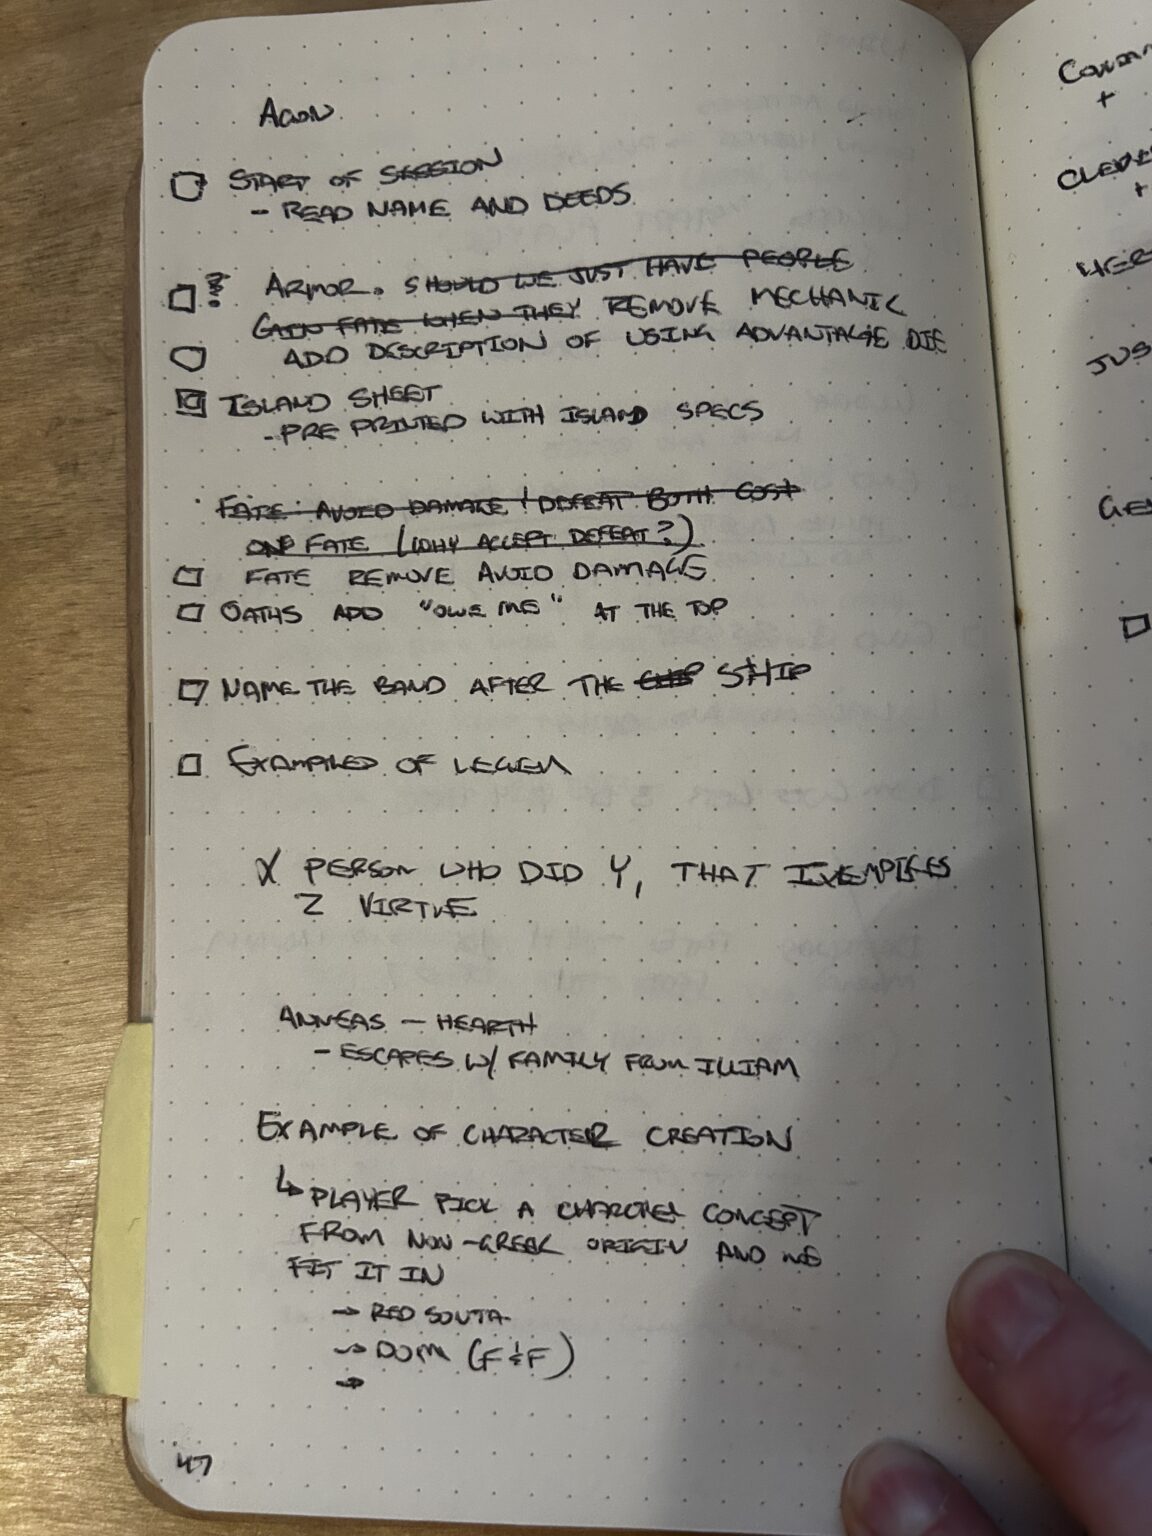 AGON
START OF SESSION
- READ NAME AND DEEDS
? ARMOR. SHOULD WE JUST HAVE PEOPLE
GAIN FATE WHEN THEY REMOVE MECHANIC
ADD DESCRIPTION OF USING ADVANTAGE DIE
ISLAND SHEET
- PRE PRINTED WITH ISLAND SPECS
FATE: AVOID DAMAGE / DEFEAT BOTH COST
ONE FATE (WHY ACCEPT DEFEAT?)
FATE REMOVE AVOID DAMAGE
OATHS ADD "OWE ME" AT THE TOP
NAME THE BAND AFTER THE SHIP
EXAMPLED OF LEGEN
X PERSON WHO DID Y, THAT
Z VIRTUE
ANNEAS - HEARTH
- ESCAPES W/ FAMILY FROM ILLIAM
EXAMPLE OF CHARACTER CREATION
↳ PLAYER PICK A CONCEPT
FROM NON-GREEK ORIGIN AND WE
FIT IT IN
→ RED
→ DOM (F & F)
→
47
+
CLEVE
+
HER
JUS
GE